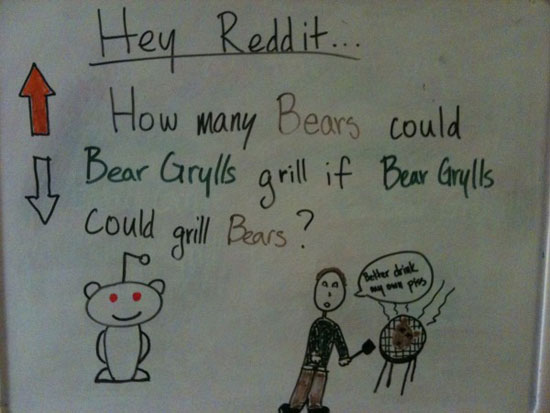 Hey Reddit...
How many Bears could
Bear Grylls grill if Bear Grylls
Could grill Bears?
Better drink
my own piss